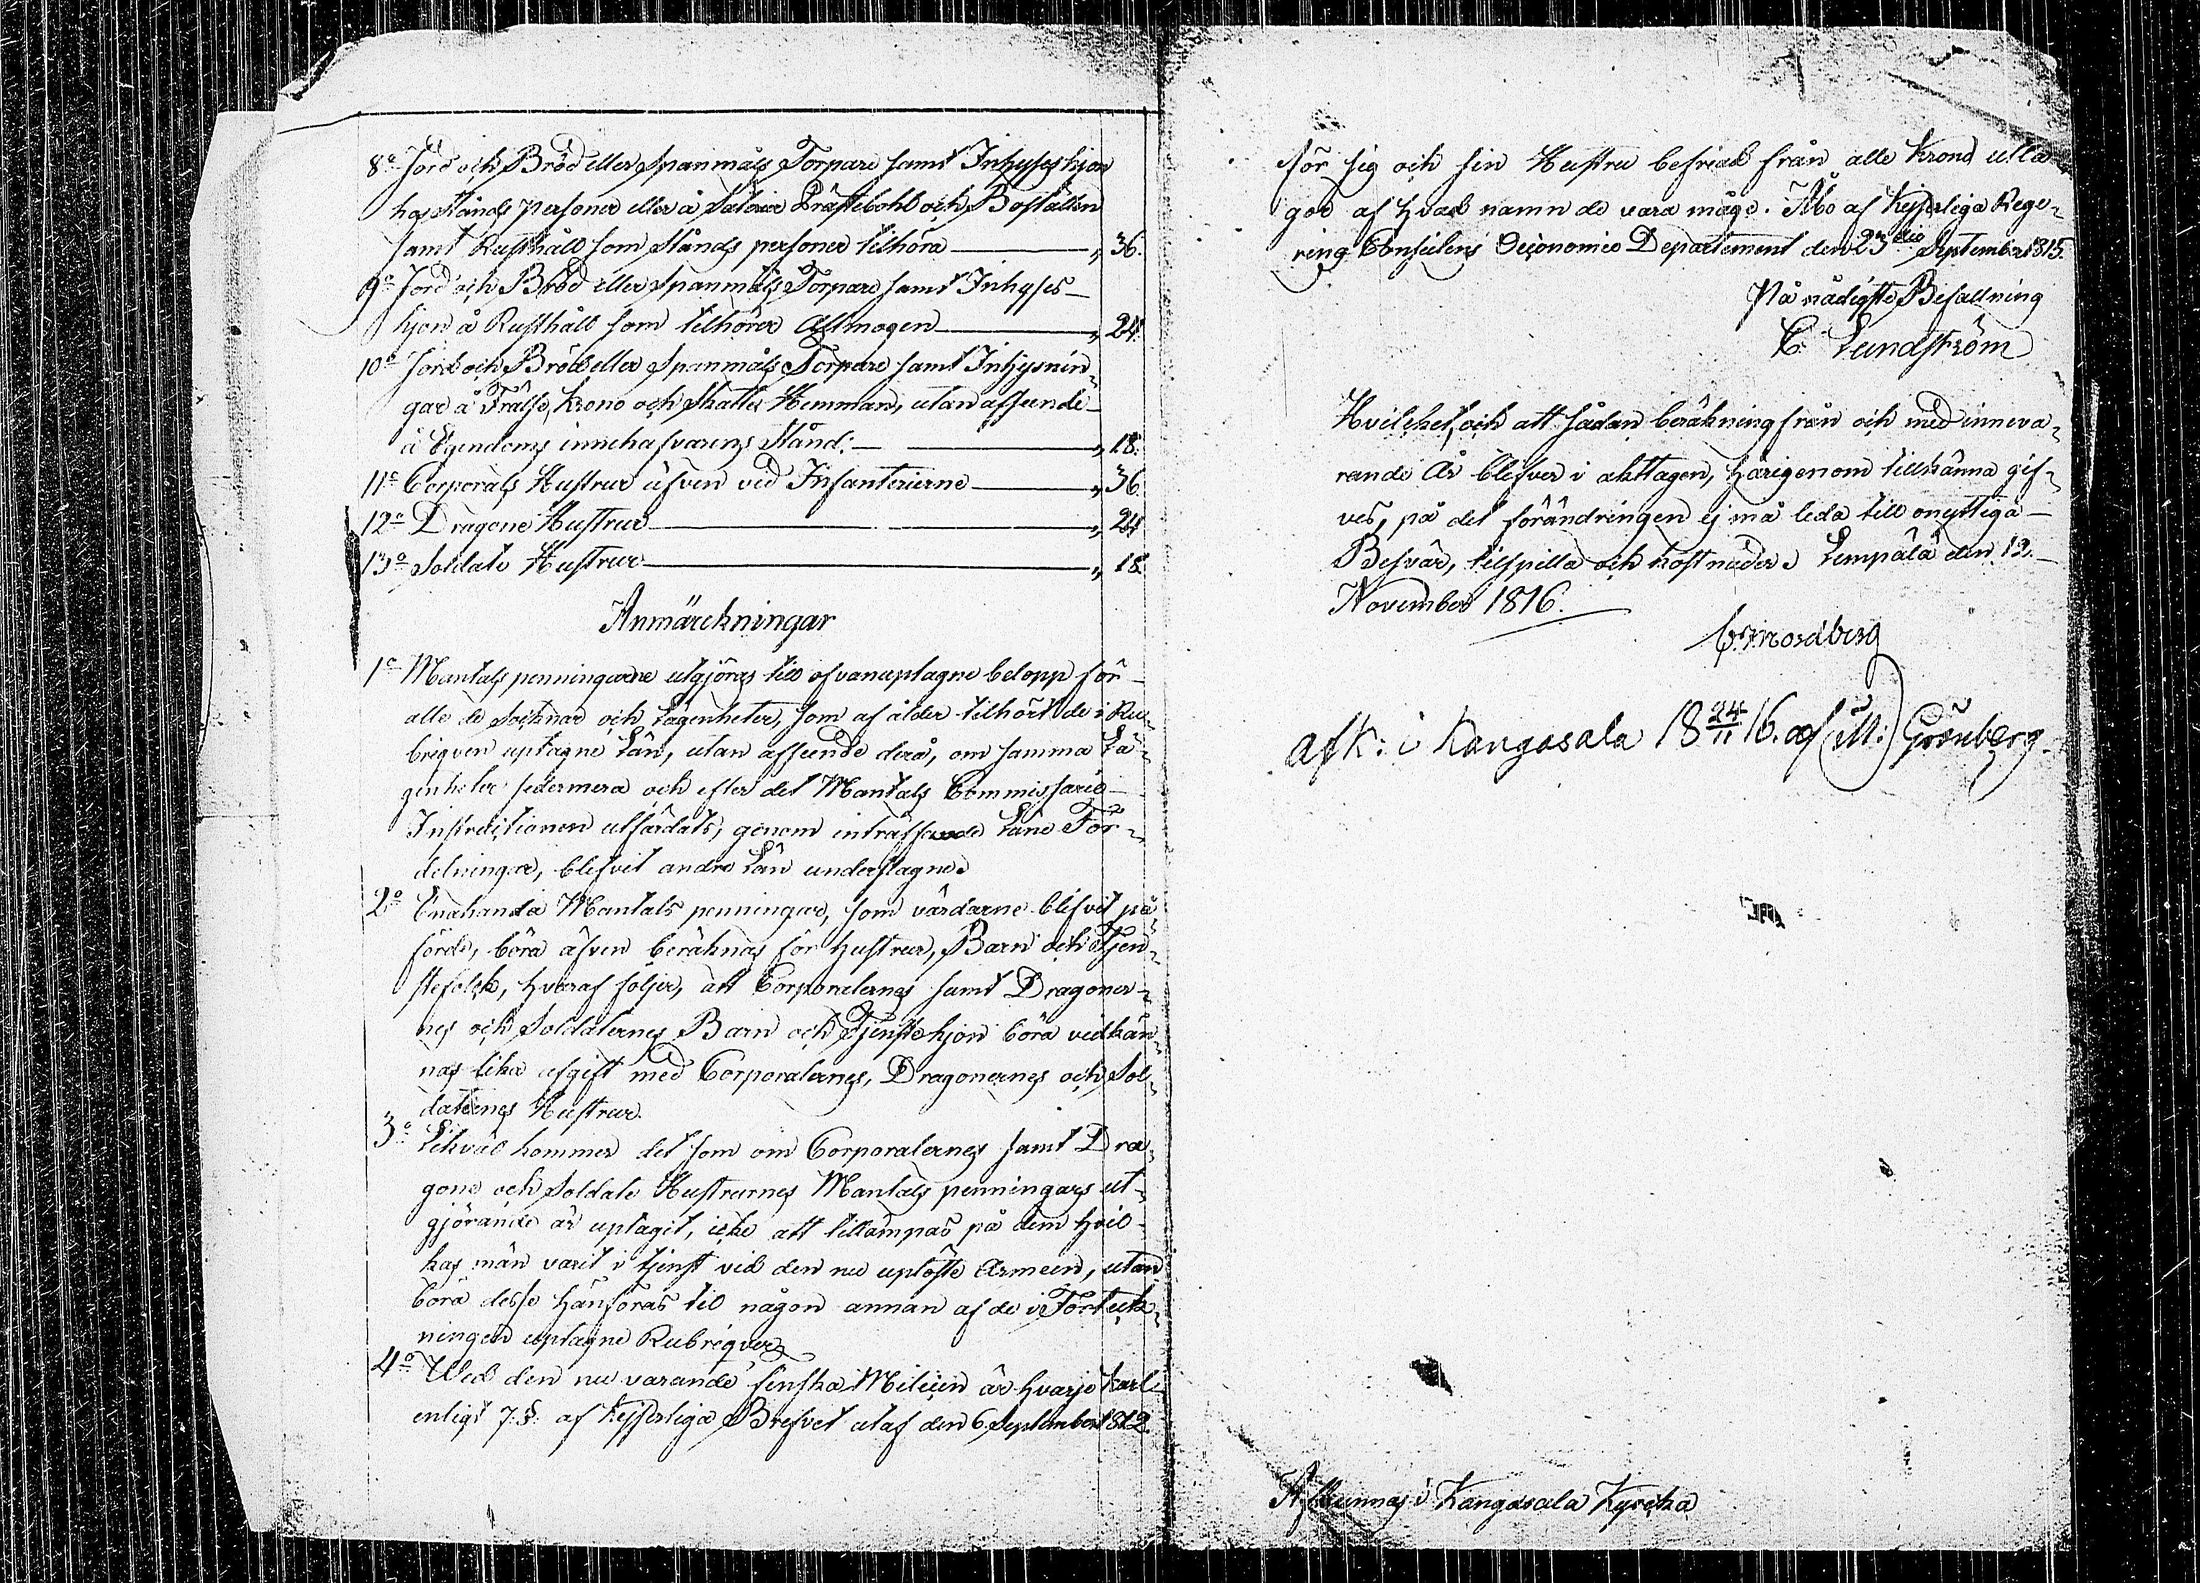 8o Jord och Bröd eller Spanmåls Torpare samt Inhyseshjon
hos Stånds personer eller å Säterier Prästebohl och Boställen
samt Rusthåll som Stånds personer tilhöra — " 36.
9o Jord och Bröd eller Spanmåls Torpare samt Inhyses-
hjon å Rusthåll som tilhörer Allmogen — " 24.
10o Jord och Bröd eller Spanmåls Torpare samt Inhysnin-
gar å Frälse, Krono och Skatte Hemman, utan afseende
å Egendoms innehafvarens Stånd: — " 18.
11o Corporals Hustrur äfven vid Infanterierne — " 36.
12o Dragone Hustrur — " 24
13o Soldate Hustrur — " 18.
Anmärckningar
1o Mantalspenningarne utgjöras till ofvanuptagne belopp för
alle de Socknar och Lägenheter, som af ålder tilhört de i Ru-
briquen uptagne Län, utan afseende derå, om samma Lä-
genheter sedermera och efter det Mantals Commissarie
Instructionen utfärdats, genom inträffande Läne För-
delningar, blefvit andre Län underlagne.
2o Enahanda Mantals penningar, som värdarne blifvit på-
förde, böra äfven beräknas för Hustrur, Barn och Tjen-
stefolck, hvaraf följer, att Corporalernes samt Dragoner-
nes och Soldaternes Barn och Tjenstehjon böra vedkän-
nas lika afgift med Corporalernes, Dragonernes och Sol-
daternes Hustrur.
3o Likväl kommer det som om Corporalernes samt Dra-
gone och Soldate Hustrurnes Mantals penningars ut-
gjörande är uptagit, icke att tillämpas på dem hvil-
kas män varit i tjenst vid den nu uplöste Armeen, utan
böra desse hänföras til någon annan af de i Förteck-
ningen uptagne Rubriquer
4o Wed den nu varande finska Milicen är hvarje Karl
enligt 7. §. af Kejserliga Brefvet utaf den 6. September 1812.
för sig och sin Hustru befriad från alle Krono utla-
gor af hvad namn de vara måge. Åbo af Kejserliga Rege-
ring Conseilens Oeconomie Departement den 23die September 1815.
På nådigste Befallning
C. Lundström
Hvilcket, och att sådan beräkning från och med inneva-
rande År blefver i akttagen, härigenom tillkänna gif-
ves, på det förändringen ej må leda till onyttiga
Besvär, tilspillo och kostnader. Lempälä den 12.
November 1816.
Nordberg
Afk: i Kangasala 18 24/11 16. af M: Grönberg
Afkunnas i Kangasala Kyrcka